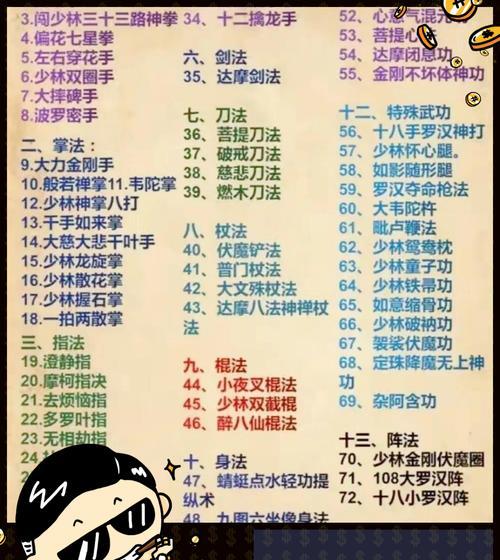 3.闯少林三十三路神拳
4.偏花七星拳
5.左右穿花手
6.少林双圈手
7.大摔碑手
8.波罗密手
二、掌法：
9.大力金刚手
10.般若禅掌11.韦陀掌
12.少林神掌八打
13.千手如来掌
14.大慈大悲千叶手
15.少林龙旋掌
16.少林散花掌
17.少林握石掌
18.一拍两散掌
三、指法
19.澄静指
20.摩柯指决
21.去烦恼指
22.多罗叶指
23.无相劫指
24
34、十二擒龙手
六、剑法
35、达摩剑法
七、刀法
36、菩提刀法
37、破戒刀法
38、慈悲刀法
39、燃木刀法
八、杖法
40、伏魔铲法
41、普门杖法
42、大文殊杖法
43、达摩八法神禅杖
法
九、棍法
44、小夜叉棍法
45、少林双截棍
46、醉八仙棍法
十、身法
47、蜻蜓点水轻功提
纵术
48、九图六坐像身法
52、心意气混元功
53、菩提心法
54、达摩闭息功
55、金刚不坏体神功
十二、特殊武功
56、十八手罗汉神打
57、少林怀心腿。
58、如影随形腿
59、罗汉夺命枪法
60、大韦陀杵
61、毗卢鞭法
62、少林鸳鸯枕
63、少林童子功
64、少林铁帚功
65、如意缩骨功
66、少林破衲功
67、袈裟伏魔功
68、定珠降魔无上神
功
69、杂阿含功
十三、阵法
70、少林金刚伏魔圈
71、108大罗汉阵
72、十八小罗汉阵